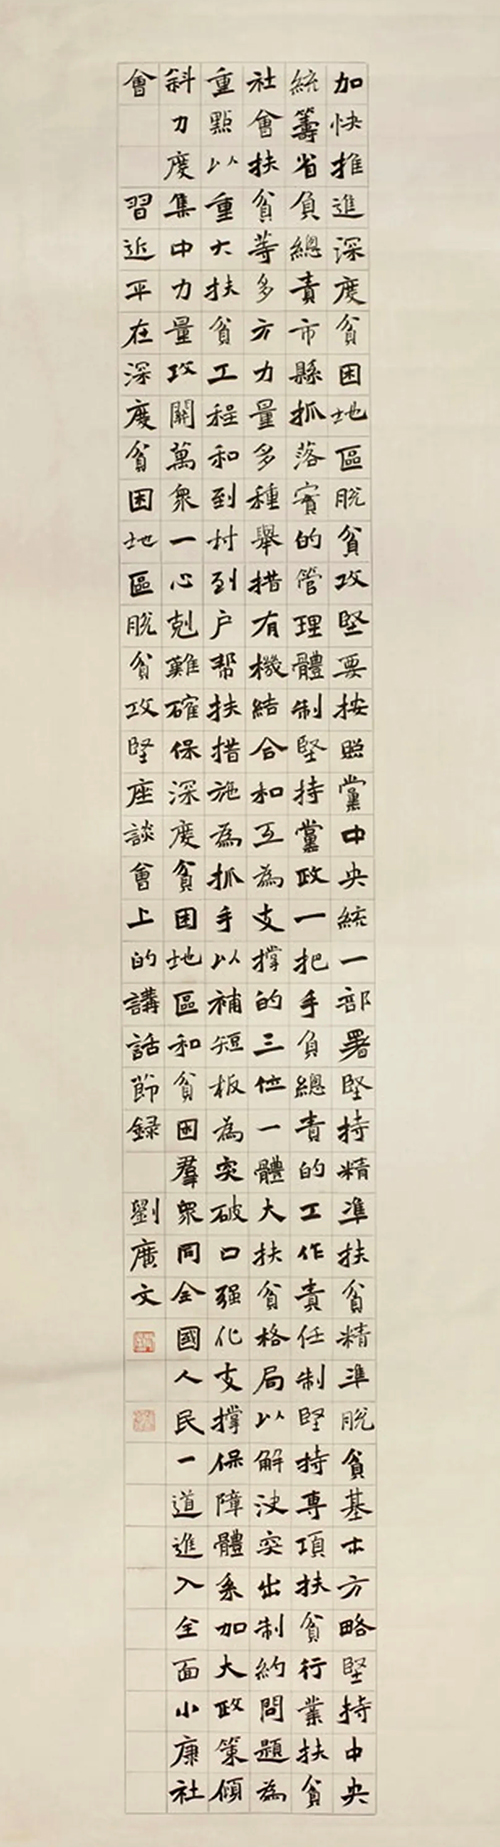 加快推進深度貧困地區脫貧攻堅要按照黨中央統一部署堅持精準扶貧精準脫貧基本方略堅持中央
統籌省負總責市縣抓落實的管理體制堅持黨政一把手負總責的工作責任制堅持專項扶貧行業扶貧
社會扶貧等多方力量多種舉措有機結合和互為支撐的三位一體大扶貧格局以解決突出制約問題為
重點以重大扶貧工程和到村到户幫扶措施為抓手以補短板為突破口强化支撐保障體系加大政策傾
斜力度集中力量攻關萬衆一心剋難確保深度貧困地區和貧困羣衆同全國人民一道進入全面小康社
會 習近平在深度貧困地區脫貧攻堅座談會上的講話節録 劉廣文